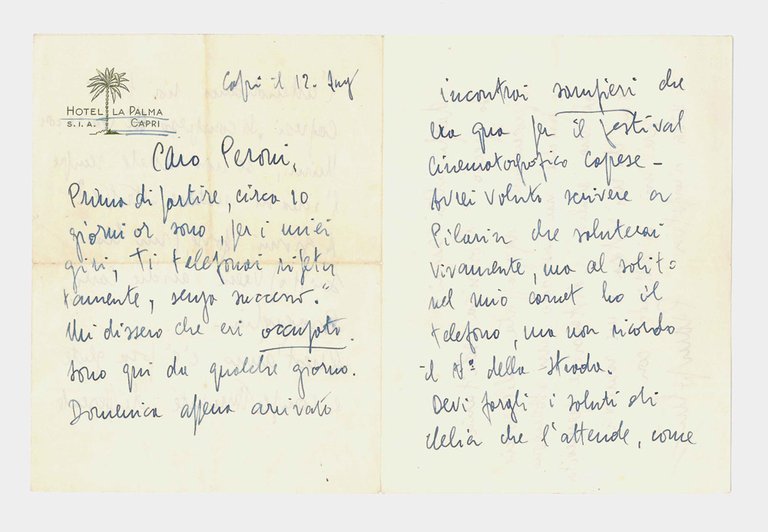 HOTEL LA PALMA
S.I.A. CAPRI
Capri il 12.
Caro Peroni,
Prima di partire, circa 10
giorni or sono, per i miei
giri, ti telefonai ripetu
tamente, senza successo."
Mi dissero che eri occupato.
sono qui da qualche giorno.
Domenica appena arrivato
incontrai sampieri che
era qua per il festival
Cinematografico Caprese -
Avrei voluto scrivere a
che saluterai
vivamente, ma al solito
nel mio carnet ho il
telefono, ma non ricordo
il Nº della strada.
Devi fargli i saluti di
Clelia che l'attende, come